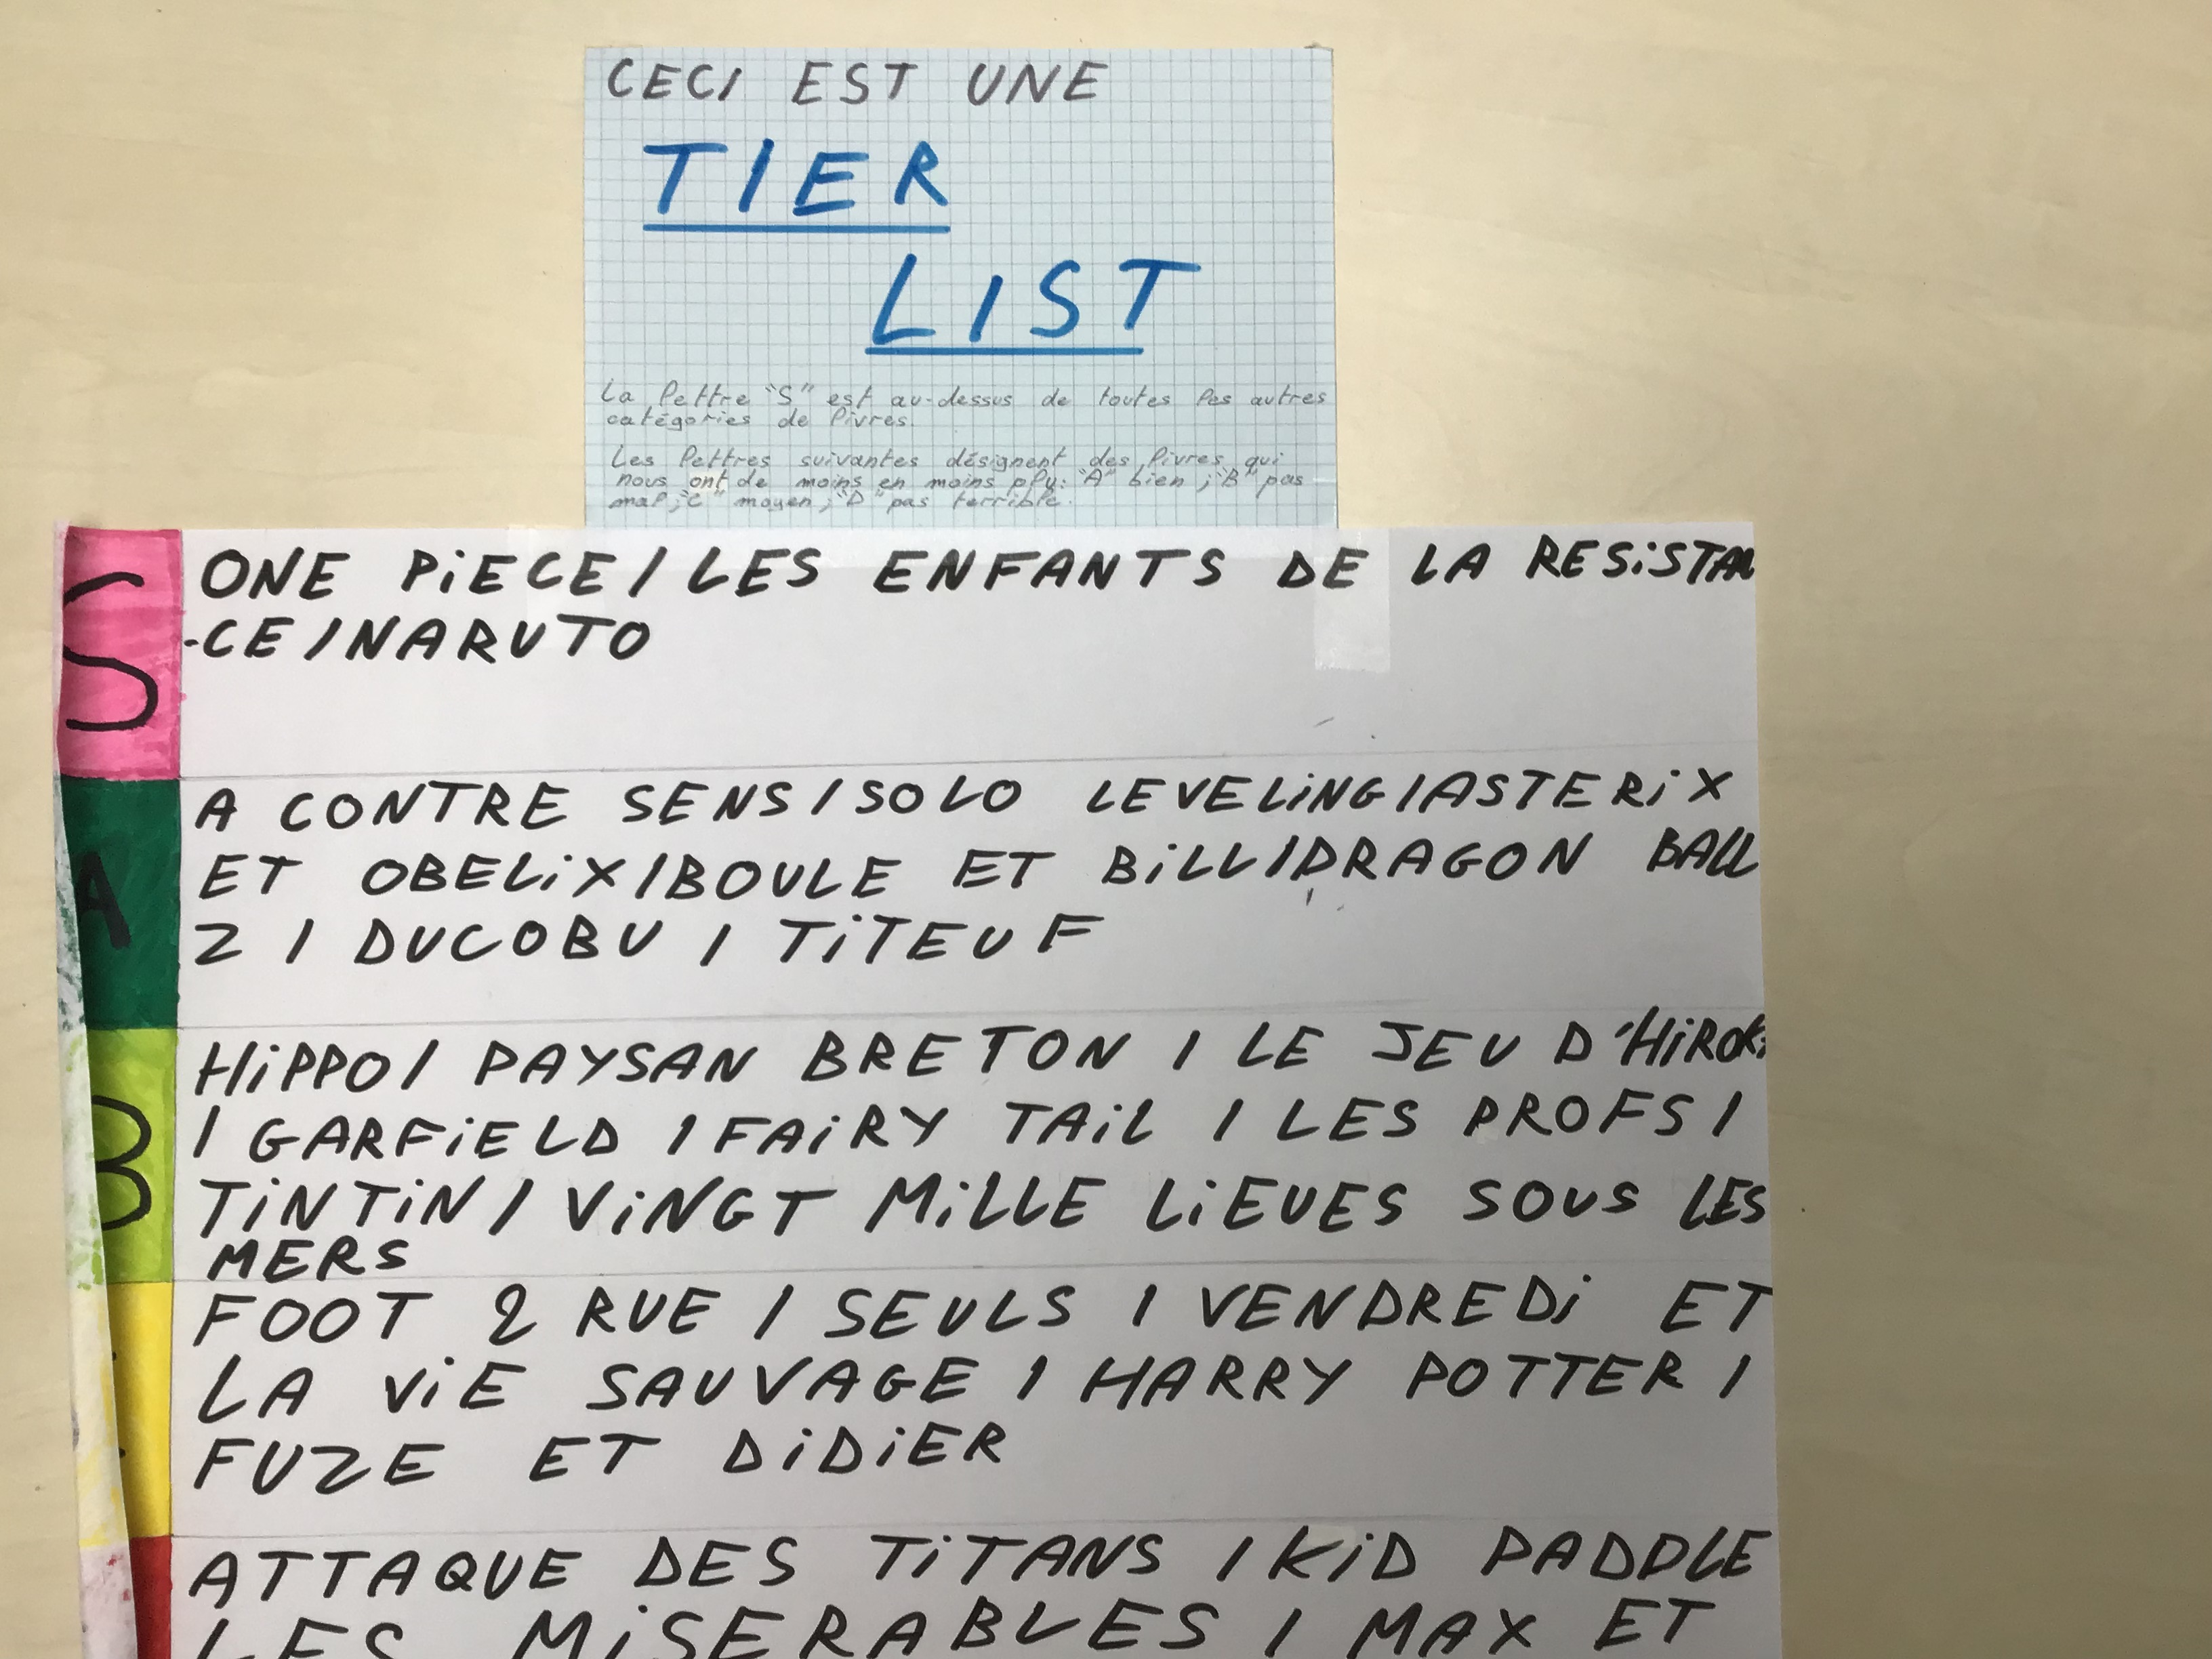 CECI EST UNE
TIER
LIST
La lettre "S" est au-dessus de toutes les autres
catégories de livres.
Les lettres suivantes désignent des livres qui
nous ont de moins en moins plu: "A" bien ; "B" pas
mal ; "C" moyen ; "D" pas terrible.
S
ONE PiECE / LES ENFANTS DE LA RESiSTAN
-CE / NARUTO
A
A CONTRE SENS / SOLO LEVELiNG / ASTERiX
ET OBELiX / BOULE ET BiLL / DRAGON BALL
Z / DUCOBU / TiTEUF
B
HiPPO / PAYSAN BRETON / LE JEU D'HiROKi
/ GARFiELD / FAiRY TAiL / LES PROFS /
TiNTiN / ViNGT MiLLE LiEUES SOUS LES
MERS
FOOT 2 RUE / SEULS / VENDREDi ET
LA ViE SAUVAGE / HARRY POTTER /
FUZE ET DiDiER
ATTAQUE DES TiTANS / KiD PADDLE
LES MiSERABLES / MAX ET